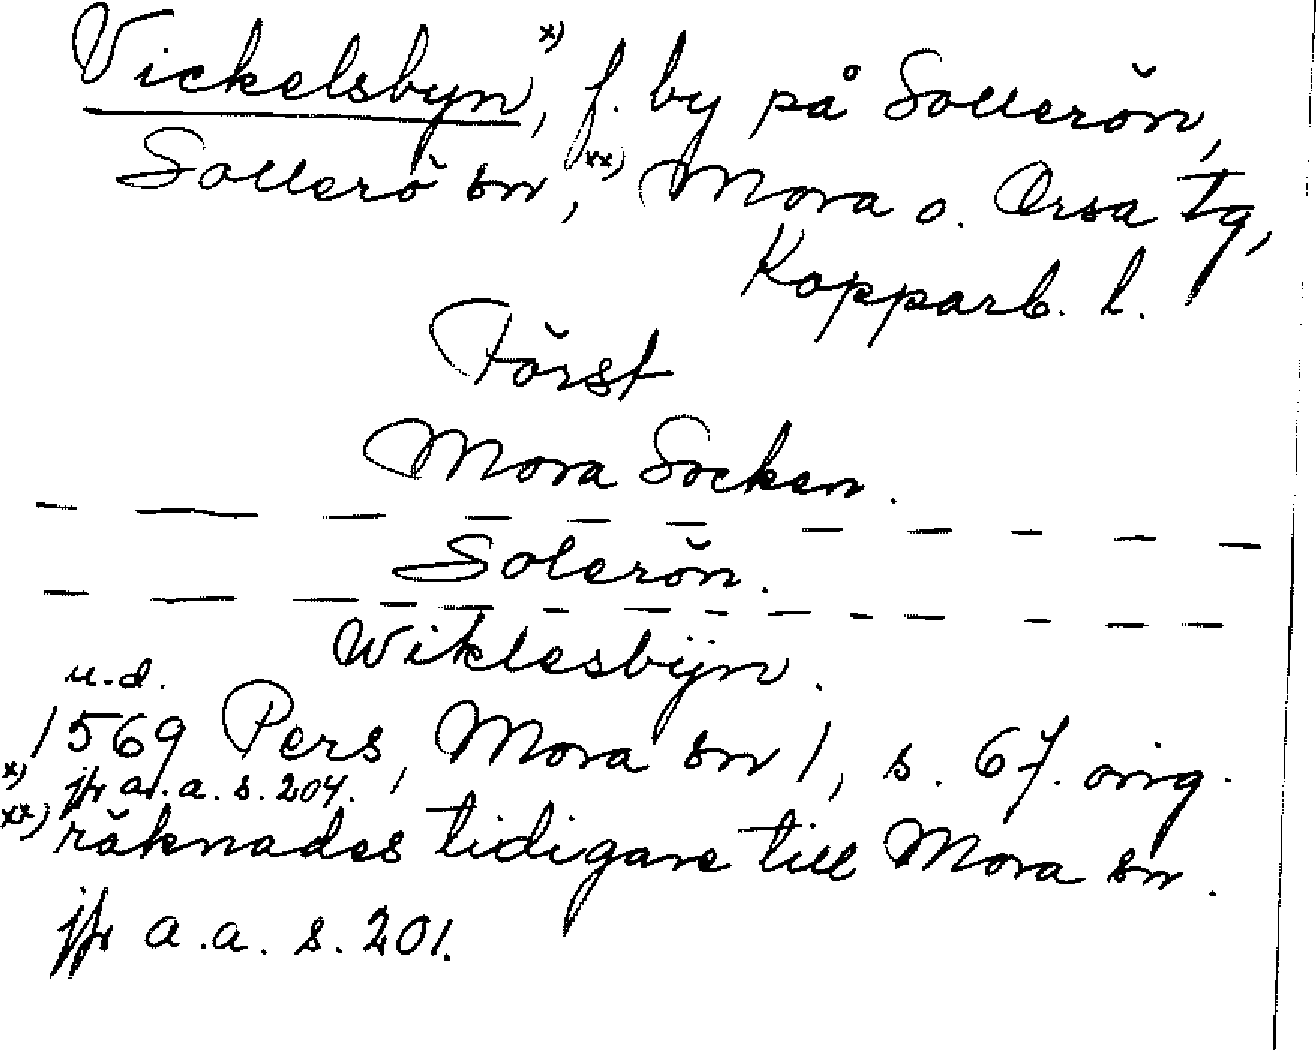 Vickelsbyn,^x) f. by på Sollerön,
Sollerö sn,^xx) Mora o. Orsa tg,
Kopparb. l.
Först
Mora Socken.
— — — — — — — — — — —
Solerön.
— — — — — — — — — — — — —
Wiklesbÿn.
u.d.
1569 Pers, Mora sn 1, s. 67. orig.
x) jfr a.a. s. 204.
xx) räknades tidigare till Mora sn.
jfr a.a. s. 201.